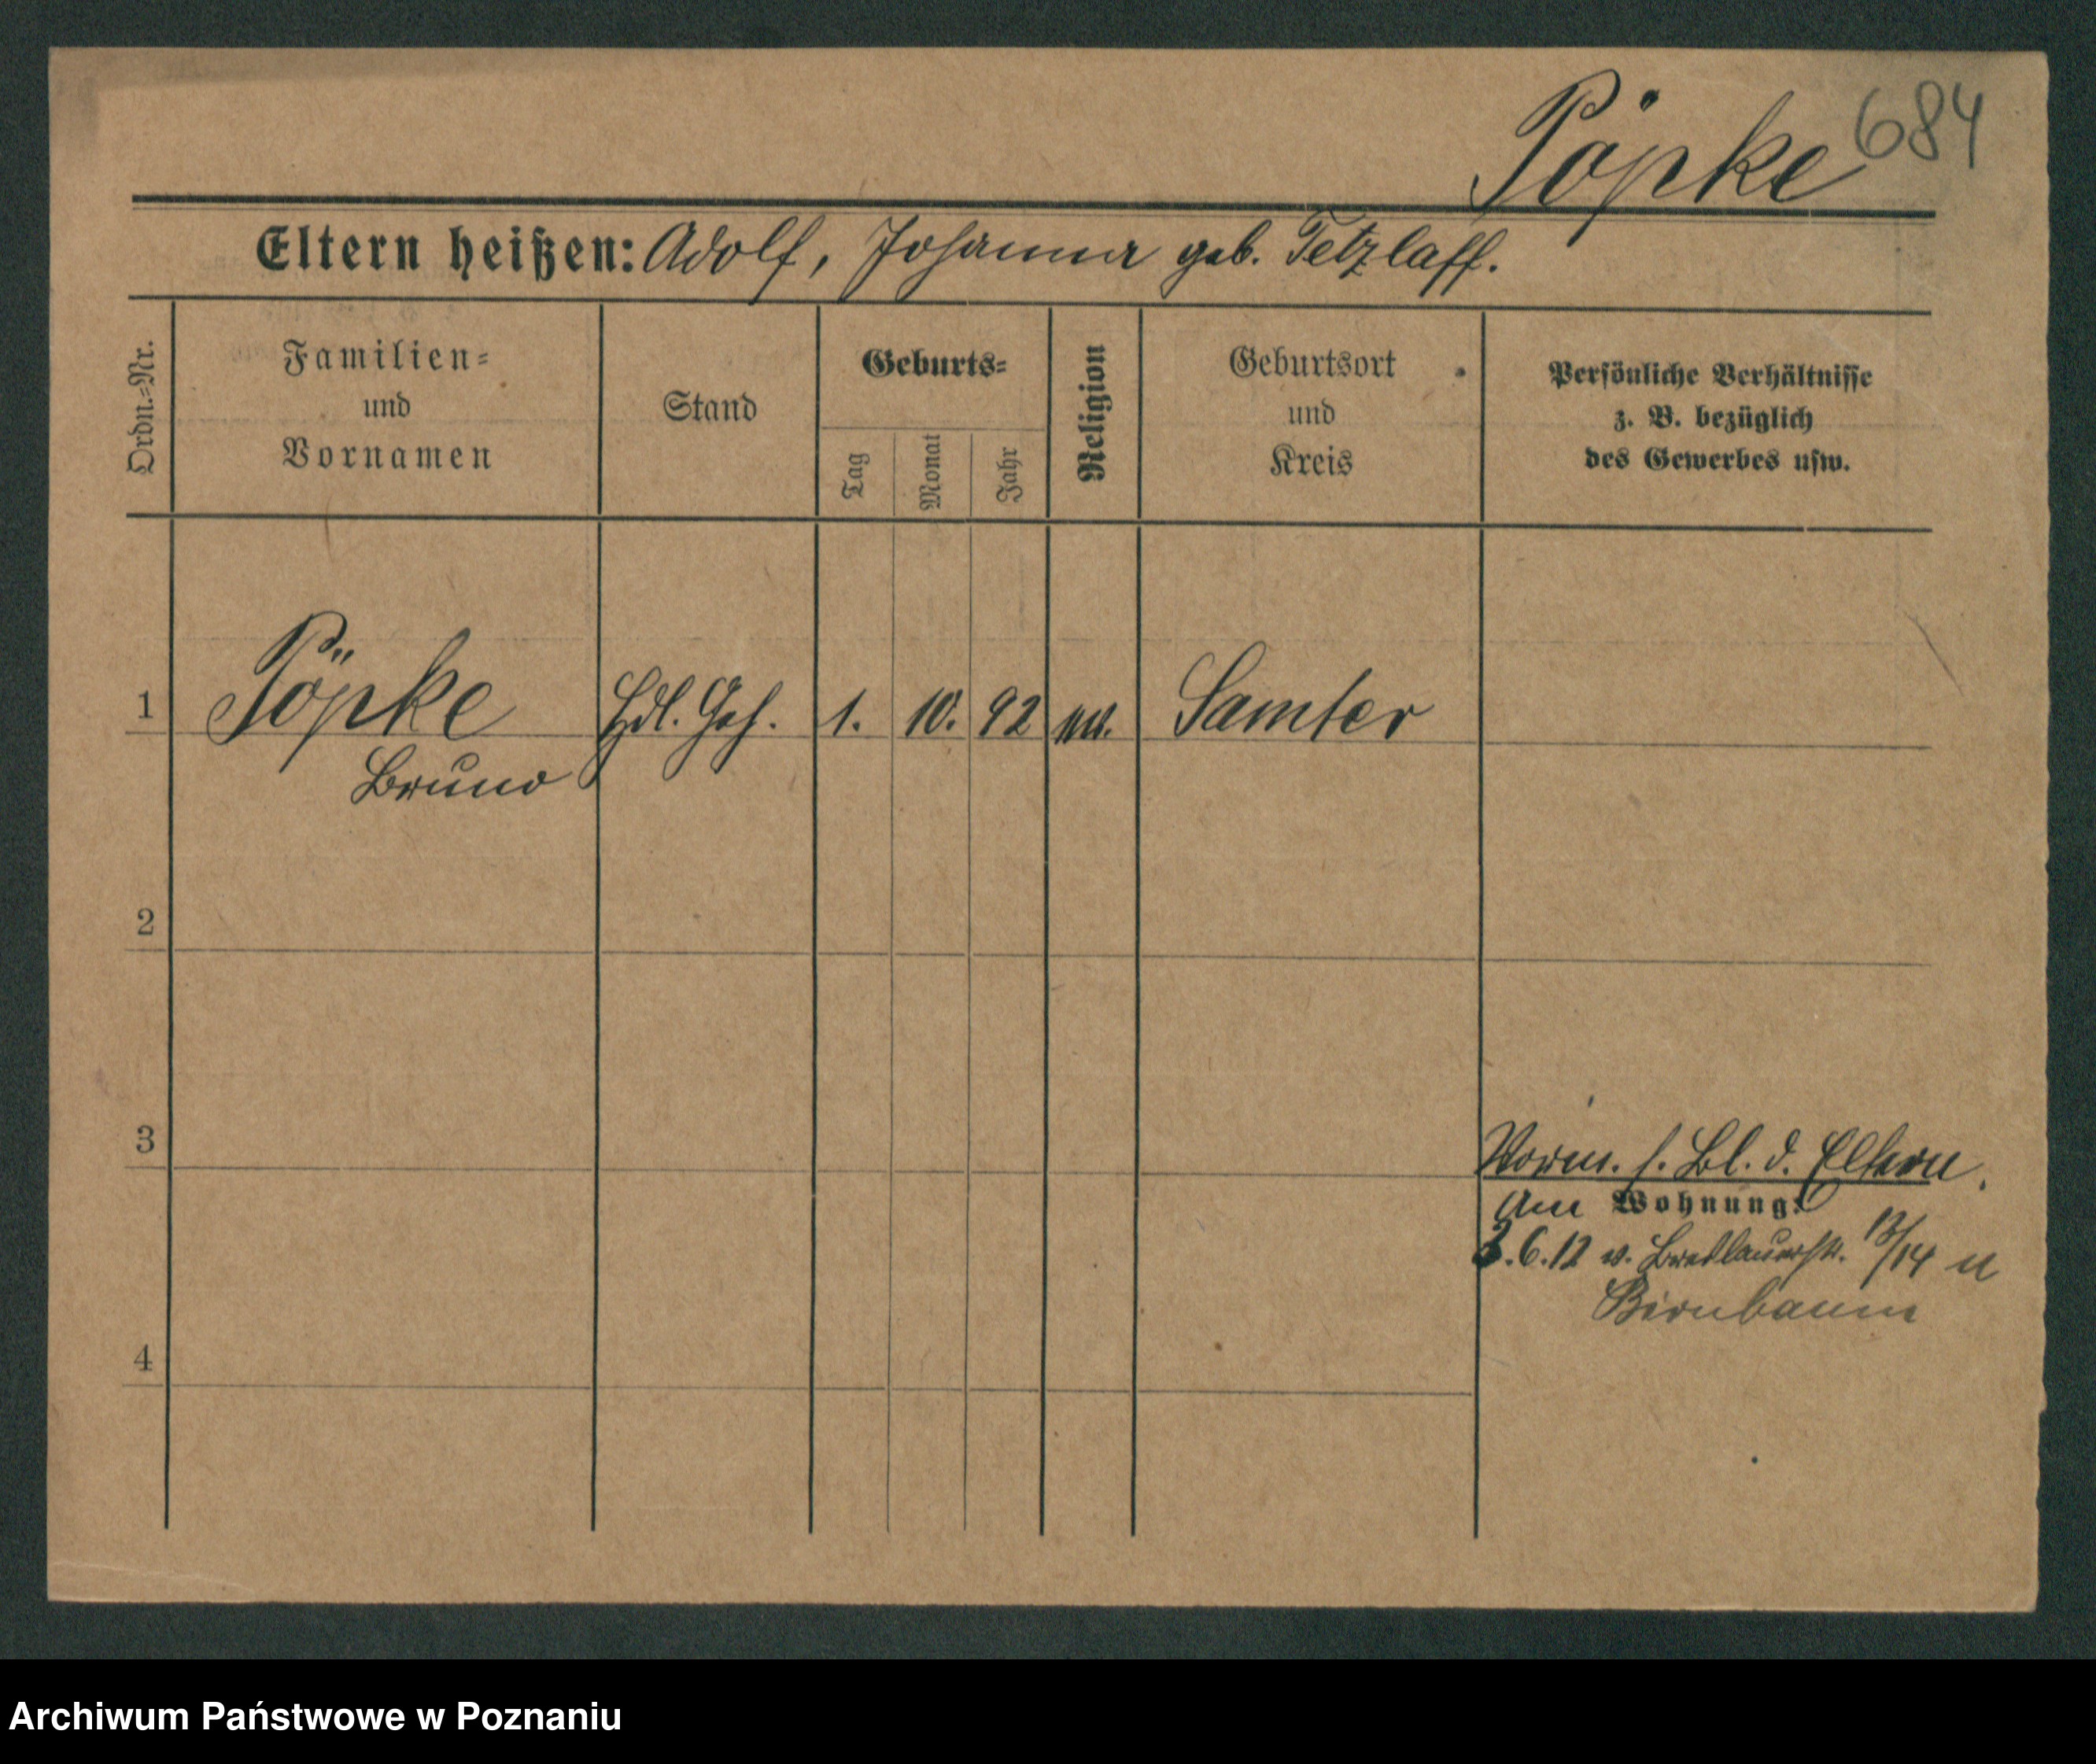 Pöpke 684
Eltern heißen: Adolf, Johanna geb. Tetzlaff.
Ordn.=Nr.
Familien=
und
Vornamen
Stand
Geburts=
Tag
Monat
Jahr
Religion
Geburtsort
und
Kreis
Persönliche Verhältnisse
z. B. bezüglich
des Gewerbes usw.
1 Pöpke Hdl. Geh. 1. 10. 92 ev. Samter
Bruno
2
3
Vorm. s. Bl. d. Eltern.
Am Wohnung:
3.6.12 v. Breslauerstr. 13/14 n
Birnbaum
4
Archiwum Państwowe w Poznaniu